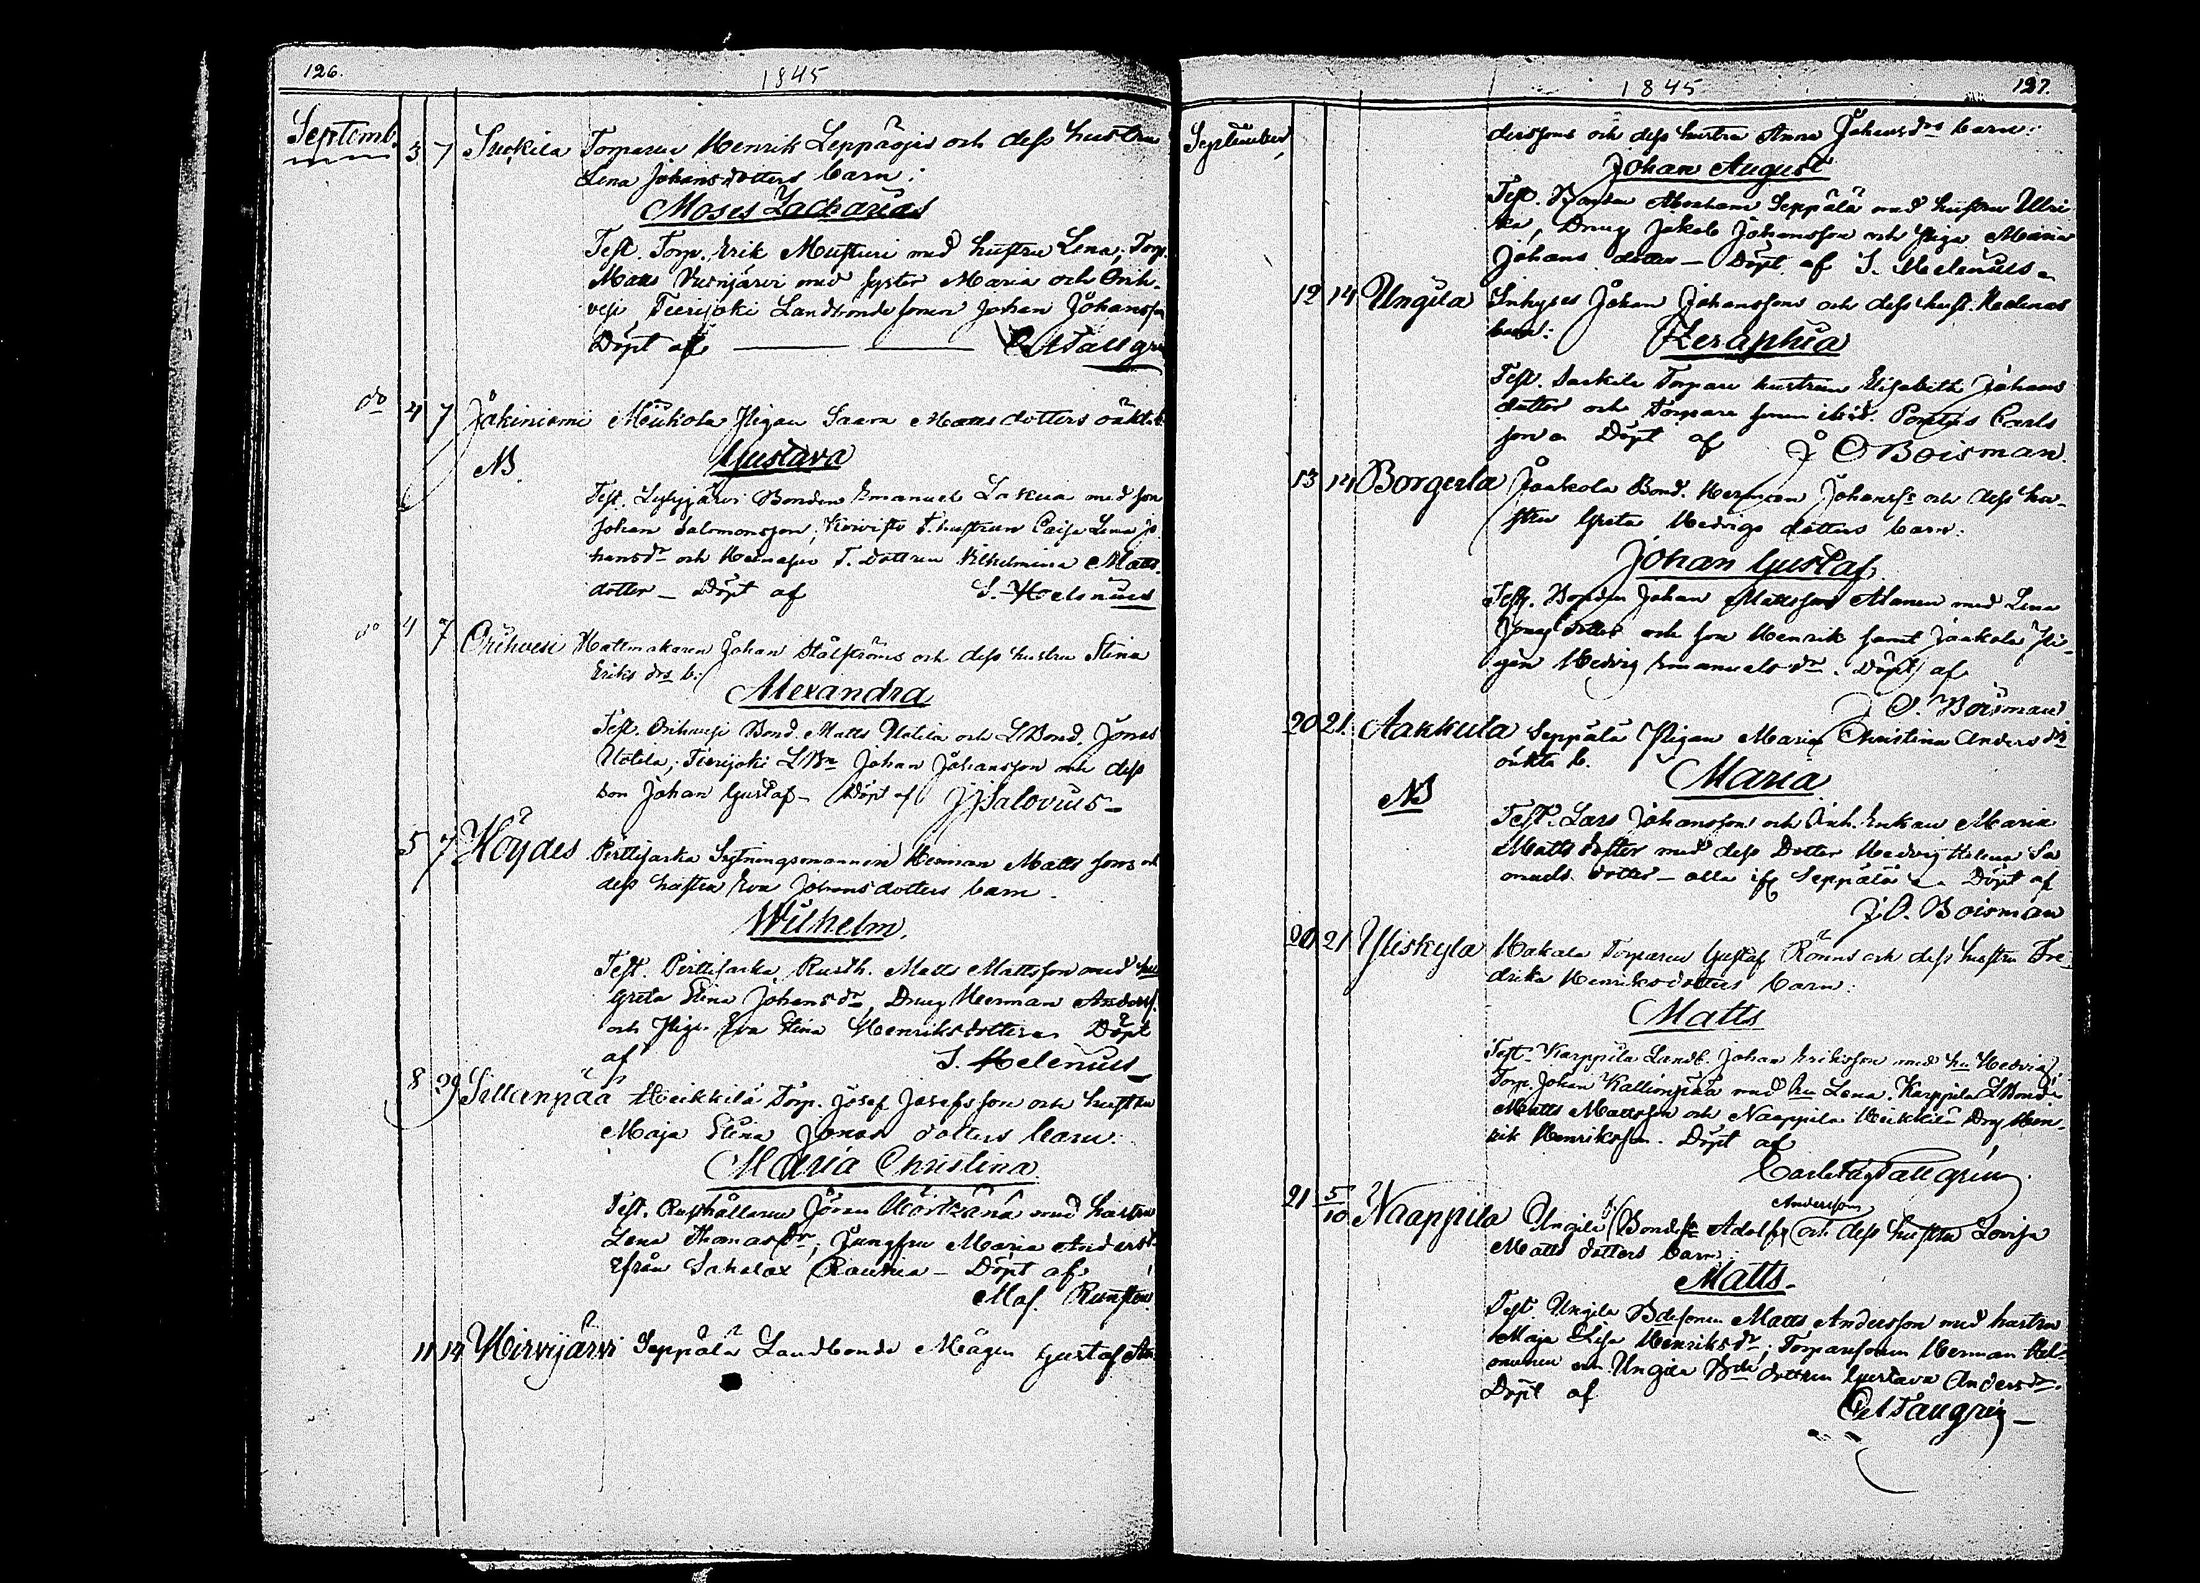 126.
1845
Septemb.
3 7 Suckila Torparen Henrik Leppäojis och dess hustru
Lena Johansdotters barn:
Moses Zacharias
Test. Torp. Erik Musturi med hustru Lena, Torp.
Matts med syster Maria och Orih-
vesi, Teerijoki Landbonde sonen Johan Johansson
Döpt af CATallgr
do 4 7 Jokiniemi Pigan Saara Matts dotters oäkt. b.
NB. Gustava
Test. Syhyjärvi Bonden Emanuel med son
Johan Salomonsson, T. hustrun Caisa Lena Jo
hansdr och T. dottren Vilhelmina Matts
dotter — Döpt af S. Helenius
do 4 7 Orihvesi Hattmakaren Johan Stålströms och dess hustru Stina
Eriks drs b:
Alexandra
Test. Orihvesi Bond. Matts Uotila och LBond. Jonas
Uotila, Teerijoki LBn Johan Johansson och dess
son Johan Gustaf — Döpt af J Salovius —
5 7 Höydes Pirttisarka Sytningsmannen Herman Matts sons och
dess hustru Eva Johansdotters barn.
Wilhelm.
Test. Pirttisarka Rusth. Matts Mattsson med hu
Greta Stina Johansdr, Dreng Herman Anderss.
och Pigan Eva Stina Henriksdotter Döpt
af S. Helenius
8 29 Sillanpää Heikkilä Torp. Josef Josefsson och hustru
Maja Stina Jonas dotters barn:
Maria Christina
Test. Rusthållaren Jöran med hustru
Lena Thomasdr, Jungfru Maria Andersd.
ifrån Sahalax — Döpt af
Maj. Runsten
11 14 Hirvijärvi Seppälä Landbonde Mågen Gustaf An
1845
127.
September
derssons och dess hustru Anna Johansdrs barn:
Johan August
Test. Bonden Abraham Seppälä med hustru Ulri
ka, Dreng Jakob Johansson och Piga Maria
Johans dotter — Döpt af S. Helenius
12 14 Ungila Inhyses Johan Johanssons och dess hust. Helenas
barn: Zeraphia
Test. Torpare hustrun Elisabeth Johans
dotter och Torpare sonen ibid. Pontus Carls
son Döpt af J O Boisman.
13 14 Borgerla Jaakola Bond. Herman Johanss och dess hu-
stru Greta Hedvigs dotters barn:
Johan Gustaf.
Test. Bonden Johan Mattsson Alanen med Lena
dotter och son Henrik samt Jaakola Pi-
gan Hedvig Emanuelsdr. Döpt af
J O. Boisman
20 21. Aakkula Seppälä Pigan Maria Christina Andersdrs
oäkta b.
NB Maria
Test. Lars Johansson och Inh. Enkan Maria
Matts dotter med dess Dotter Hedvig Helena Sa
muels dotter — alla ifr Seppälä Döpt af
J.O. Boisman
20 21 Yliskylä Hakala Torparen Gustaf Rönns och dess hustru Fre
drika Henriksdotters barn:
Matts
Test. Karppila Landb. Johan Eriksson med hu Hedvig,
Torp. Johan Kallionpää med hu Lena, Karppila LBond
Matts Mattsson och Naappila Heikkilä Drg Hen-
rik Henriksson. Döpt af
Carl Aug Tallgrén
21 5/10 Naappila Ungila Bondes Adolf Anderssons och dess hustru Lovisa
Matts dotters barn:
Matts.
Test. Ungila Bdesonen Matts Andersson med hustru
Maja Lisa Henriksdr, Torparesonen Herman
och Ungila Bde dottren Gustava Andersdr.
Döpt af CATallgrén